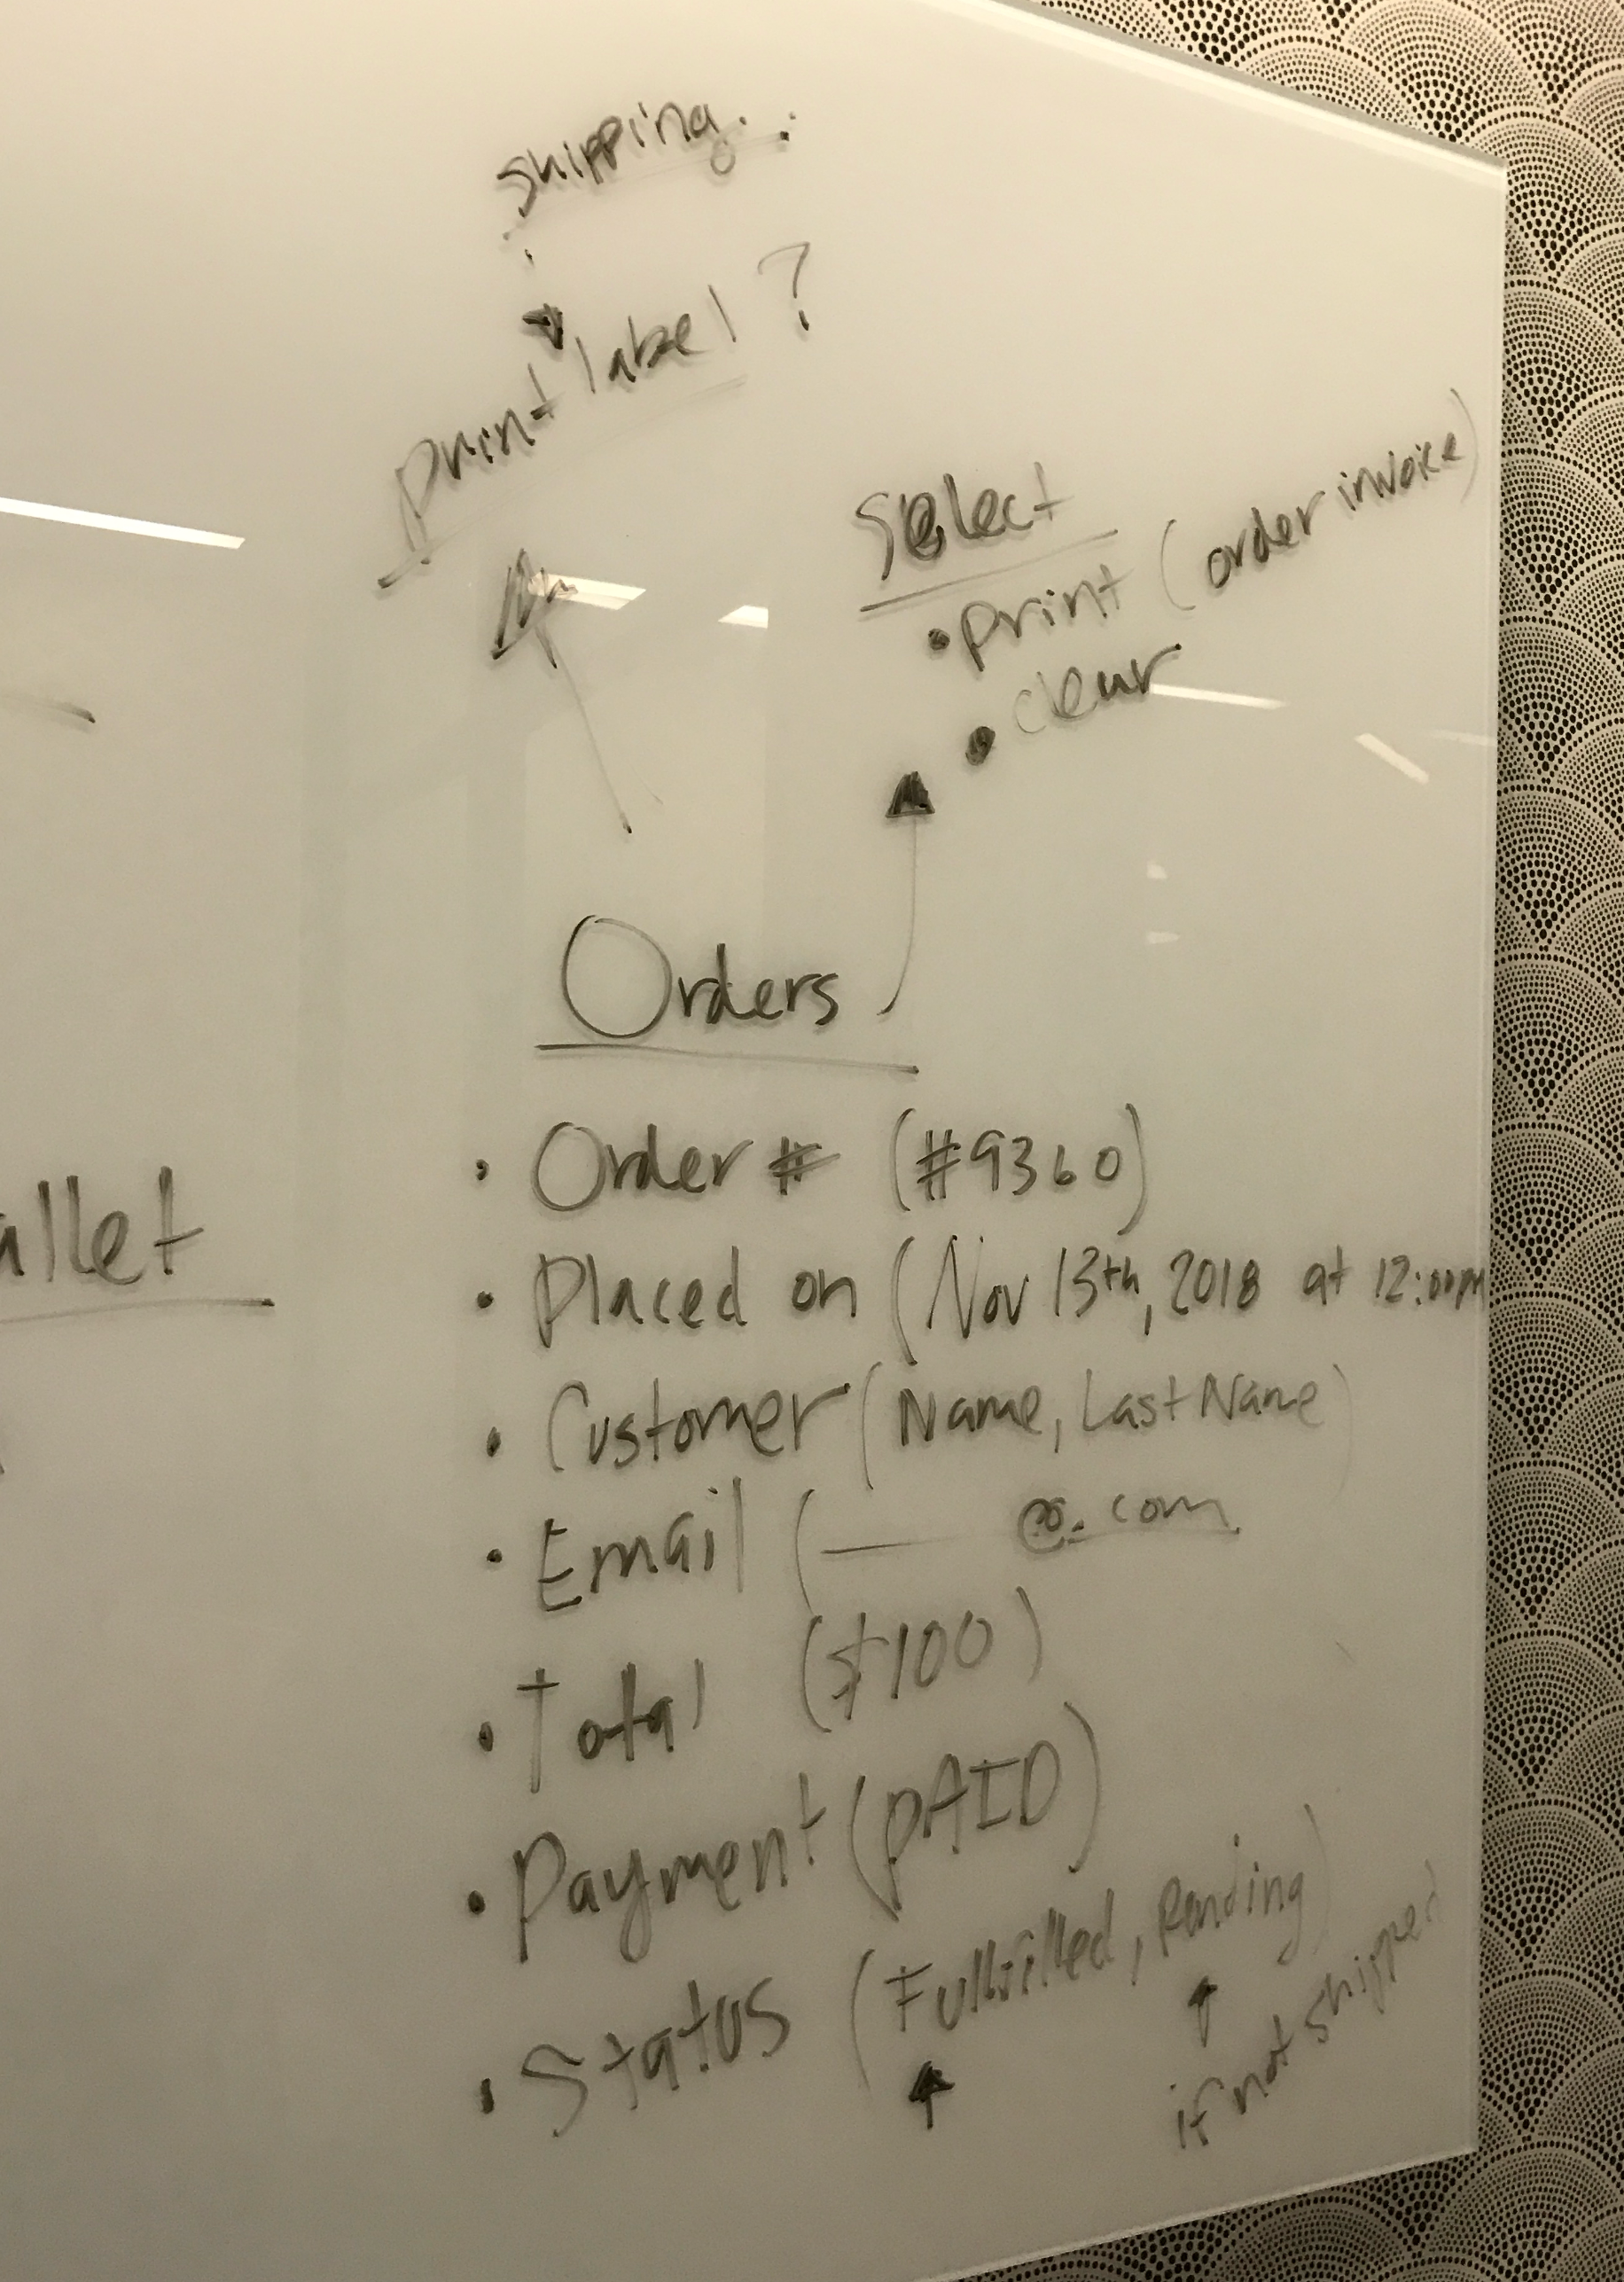 shipping
print label ?
Select
• print (order invoice)
• clear
Orders
• Order # (#9360)
• Placed on (Nov 13th, 2018 at 12:00pm
• Customer (Name, Last Name)
• Email (— @.com
• Total ($100)
• Payment (PAID)
• Status (Fullfilled, Pending)
if not shipped
allet